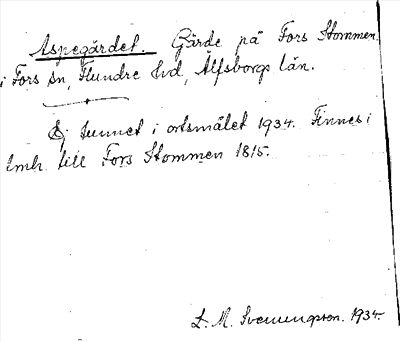 Aspegärdet. Gärde på Fors Stommen
i Fors sn, Flundre hd, Älfsborgs län.
Ej funnet i ortsmålet 1934. Finnes i
lmh. till Fors Stommen 1815.
L. M. Svenungsson. 1934.